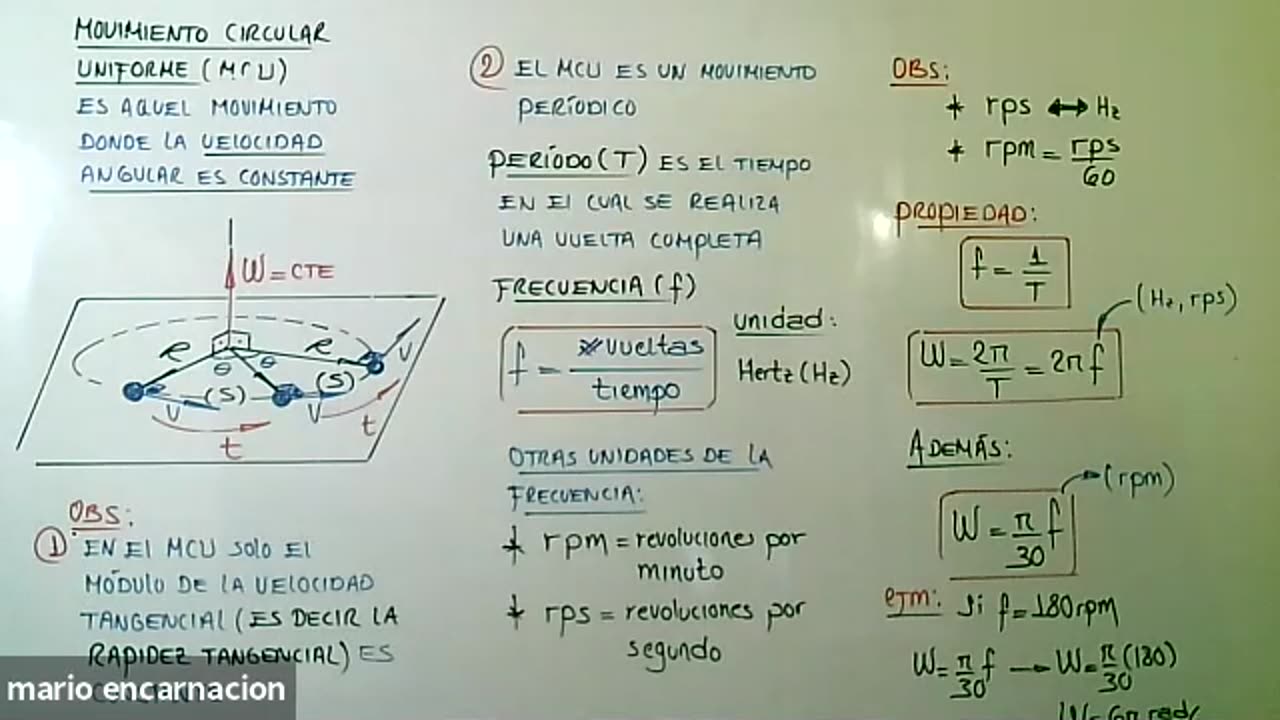 MOVIMIENTO CIRCULAR
UNIFORME (MCU)
ES AQUEL MOVIMIENTO
DONDE LA VELOCIDAD
ANGULAR ES CONSTANTE
W = CTE
R
R
θ
θ
(S)
(S)
V
V
V
t
t
OBS:
① EN EL MCU SOLO EL
MÓDULO DE LA VELOCIDAD
TANGENCIAL (ES DECIR LA
RAPIDEZ TANGENCIAL) ES
mario encarnacion
② EL MCU ES UN MOVIMIENTO
PERÍODICO
PERÍODO (T) ES EL TIEMPO
EN EL CUAL SE REALIZA
UNA VUELTA COMPLETA
FRECUENCIA (f)
f = # vueltas / tiempo
unidad:
Hertz (Hz)
OTRAS UNIDADES DE LA
FRECUENCIA:
* rpm = revoluciones por
minuto
* rps = revoluciones por
segundo
OBS:
* rps ↔ Hz
* rpm = rps / 60
PROPIEDAD:
f = 1 / T
(Hz, rps)
W = 2π / T = 2π f
ADEMÁS:
(rpm)
W = π / 30 f
ejm: Si f = 180 rpm
W = π / 30 f → W = π / 30 (180)
W = 6π rad/